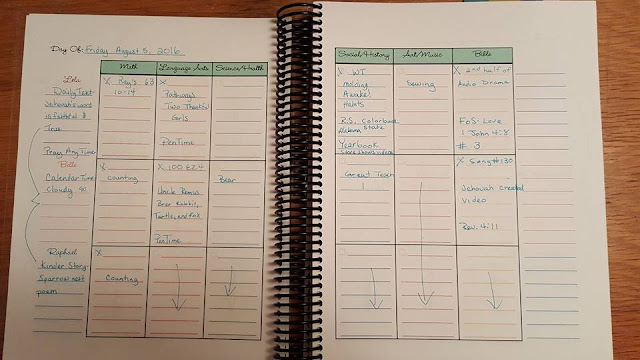 Day Of: Friday August 5, 2016
Math
Language Arts
Science/Health
Social/History
Art/Music
Bible
Daily Text
Jehovah's word
is faithful &
True
Pray Any Time
X Ray's 63
10-14
X
Pathways
Two Thankful
Girls
Pen Time
X WT
Awake!
Habits
R.S. Colorbook
Alabama State
Yearbook
Sewing
X 2nd half of
Audio Drama
FoS-Love
1 John 4:8
# 3
Calendar Time
Cloudy 90
Counting
X 100 EZ 4
Uncle Remus
Brer Rabbit,
Turtle, and Fox
Pen Time
Bear
Great Teach
1
X Song #130
Jehovah created
video
Rev. 4:11
Raphael
Kinder Story
Sparrow nest
poem
X
Counting